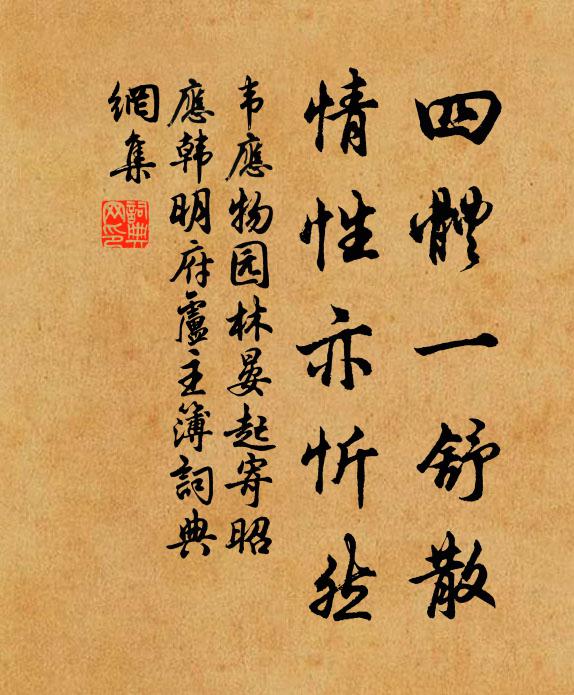 四體一舒散
情性亦忻然
韦應物园林晏起寄昭
應韩明府盧主簿詞典
網集
詞典网印